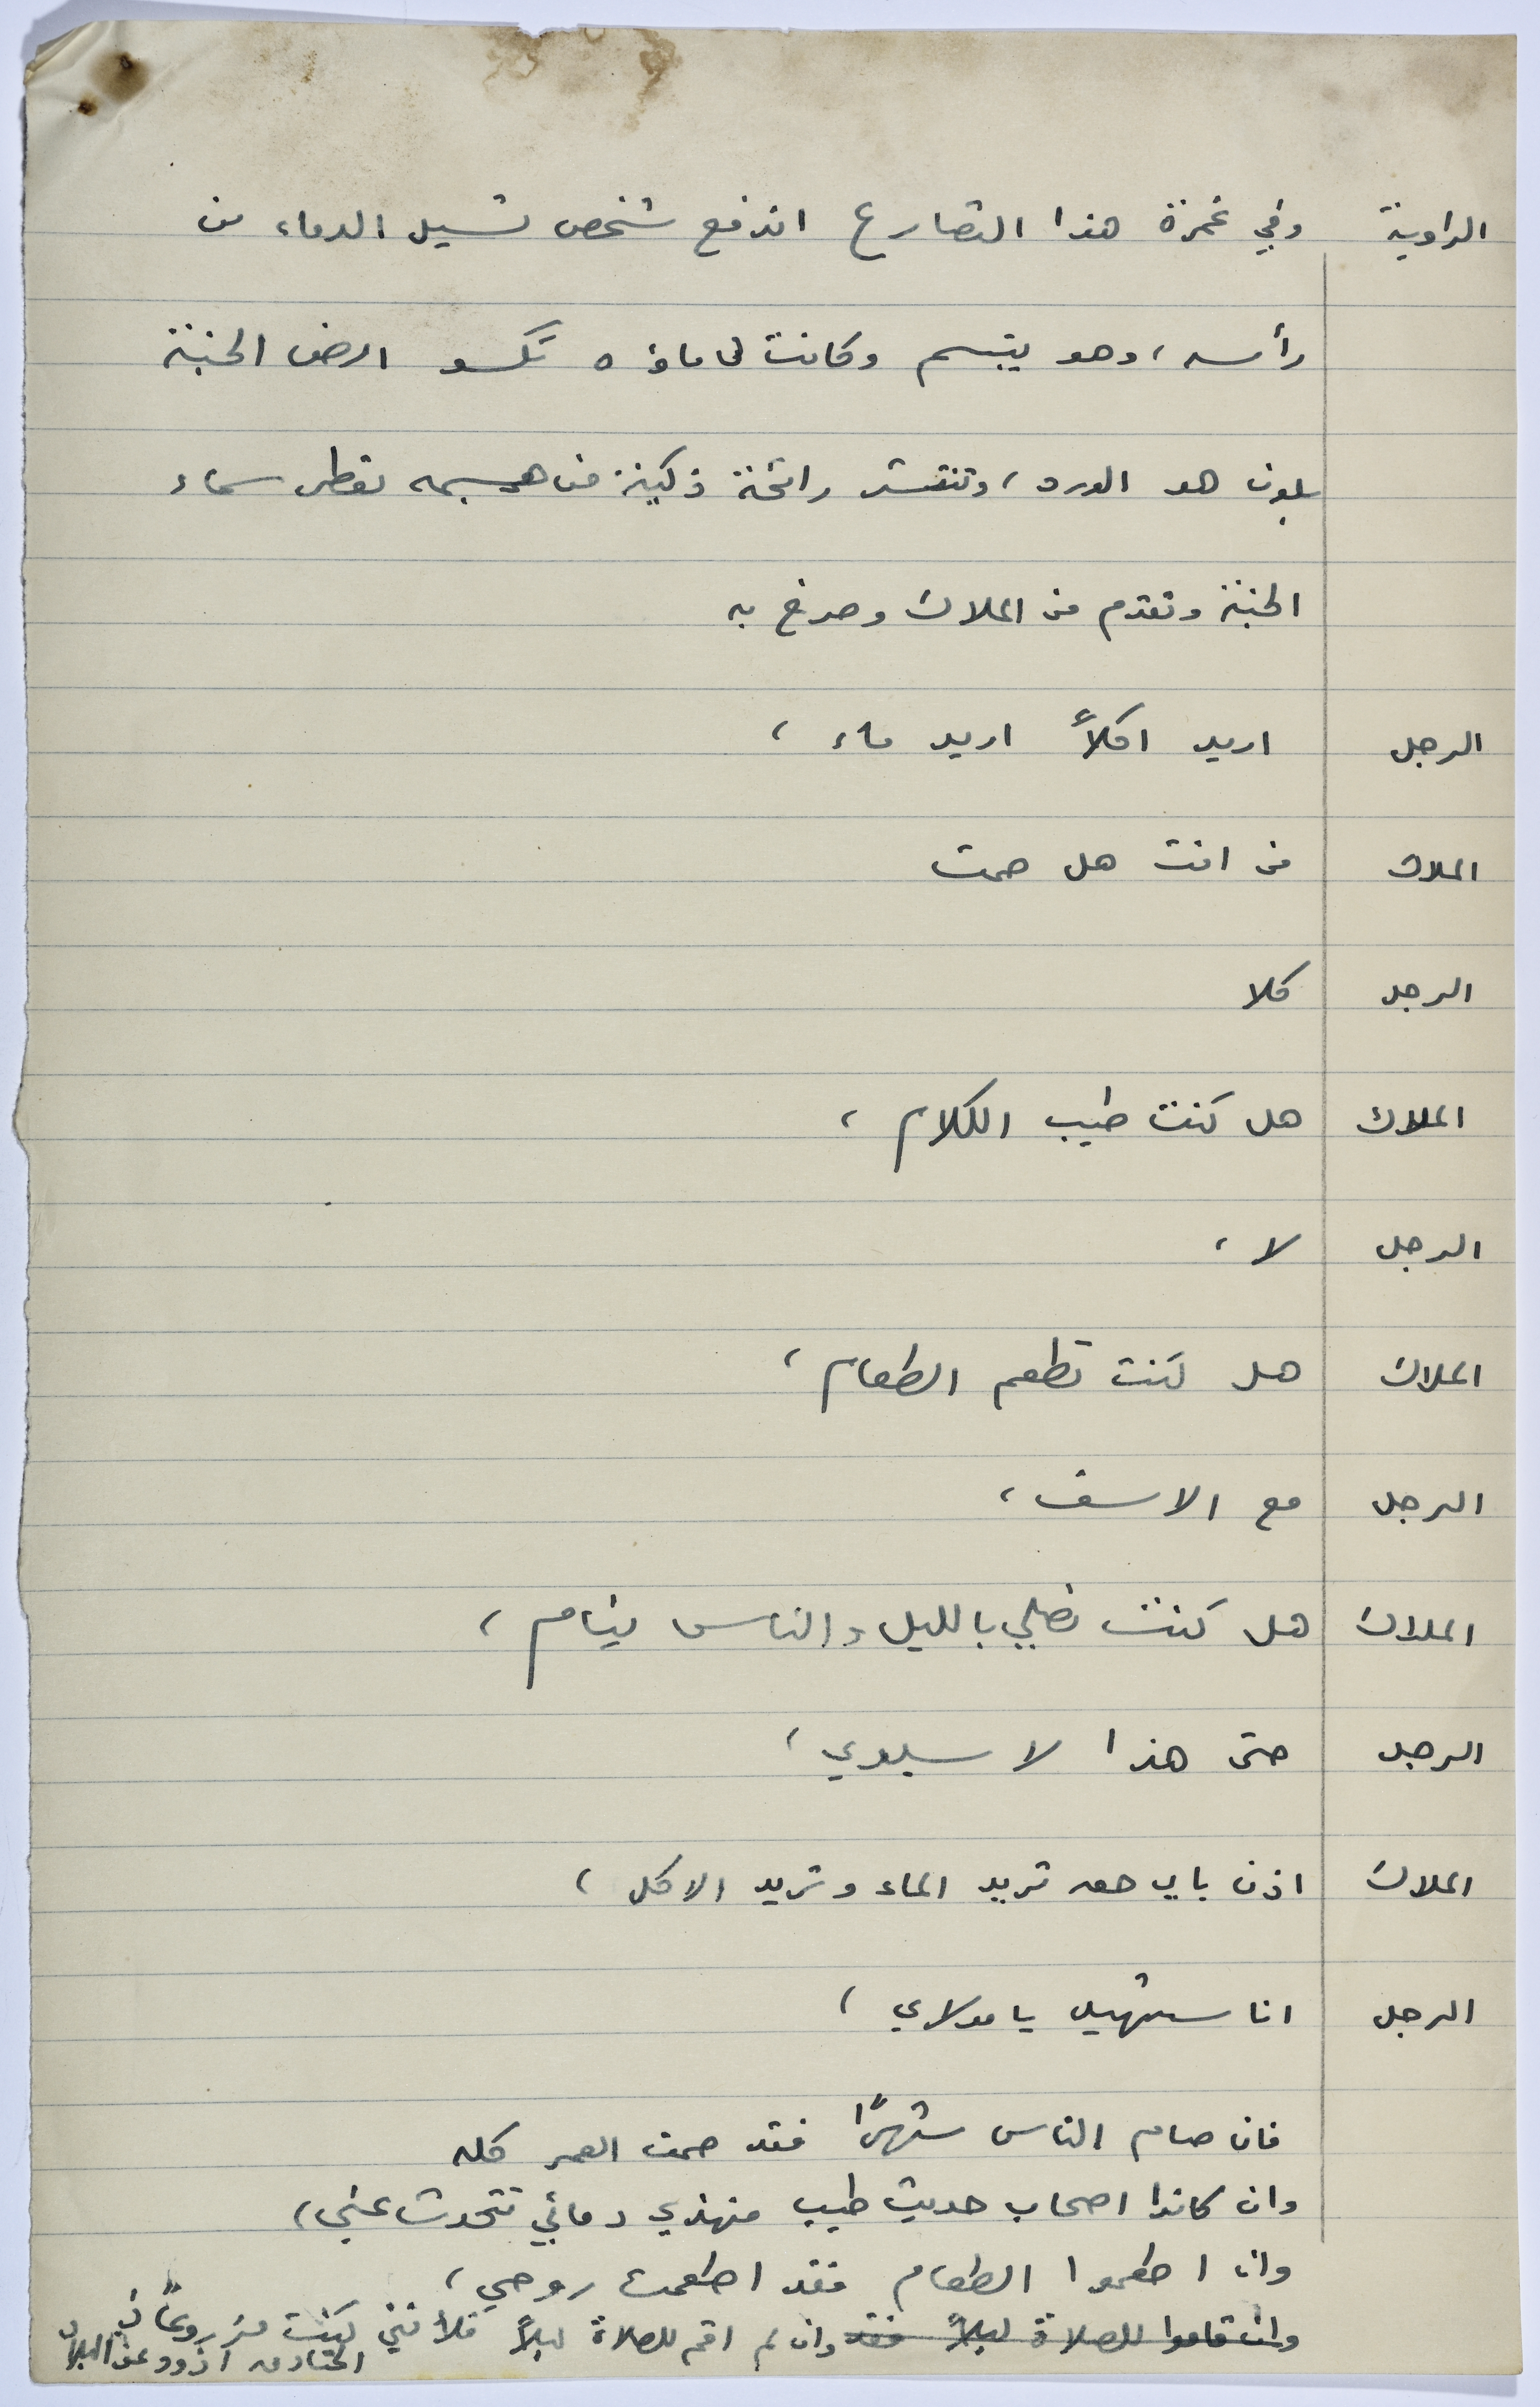 الراوية وفي غمرة هذا التصارع اندفع شخص تسيل الدماء من
رأسه، وهو يبتسم وكانت دماؤه تكسو ارض الجنة
بلون هو الورد، وتنتشر رائحة زكية من جسمه تعطر سماء
الجنة وتقدم من الملاك وصرخ به
الرجل اريد اكلاً اريد ماء،
الملاك من انت هل صمت
الرجل كلا
الملاك هل كنت طيب الكلام،
الرجل لا،
الملاك هل كنت تطعم الطعام،
الرجل مع الاسف،
الملاك هل كنت تصلي بالليل والناس نيام،
الرجل حتى هذا لا سيدي،
الملاك اذن باي حق تريد الماء وتريد الاكل،
الرجل انا شهيد يا مولاي،
فان صام الناس شهرًا فقد صمت العمر كله
وان كانوا اصحاب حديث طيب فهذي دمائي تتحدث عني،
وان اطعموا الطعام فقد اطعمت روحي،
وان قاموا للصلاة ليلاً فقد وان لم اقم للصلاة ليلاً فلأنني كنت مزروعاً في
الخنادق اذود عن البلاد